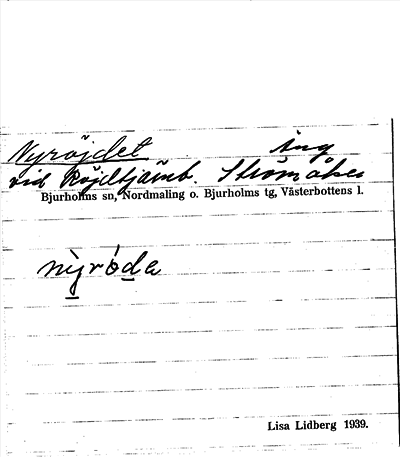 Nyröjdet äng
vid Röjdtjärnb. Strömåker
Bjurholms sn, Nordmaling o. Bjurholms tg, Västerbottens l.
nỳróda
Lisa Lidberg 1939.